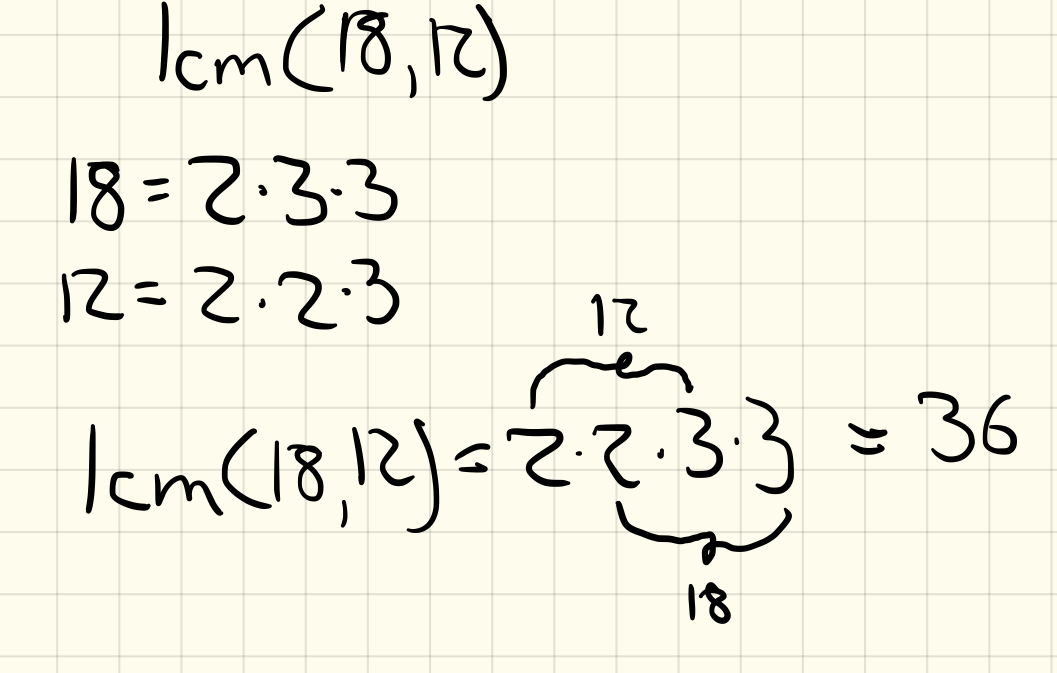 lcm(18,12)
18=2·3·3
12=2·2·3
12
lcm(18,12)=2·2·3·3 = 36
18